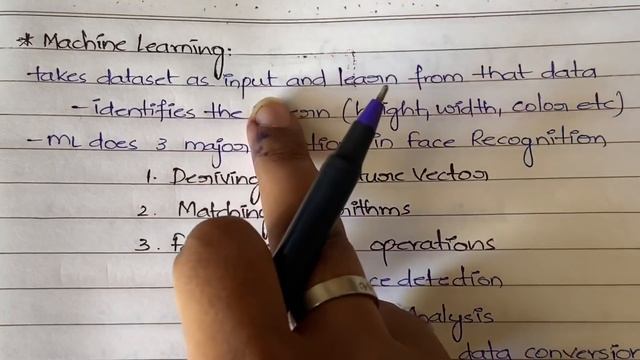 * Machine Learning:
takes dataset as input and learn from that data
- identifies the (height, width, color etc)
- ML does 3 major in Face Recognition
1. Deriving Vector
2. Matching
3. operations
detection
Analysis
data conversion